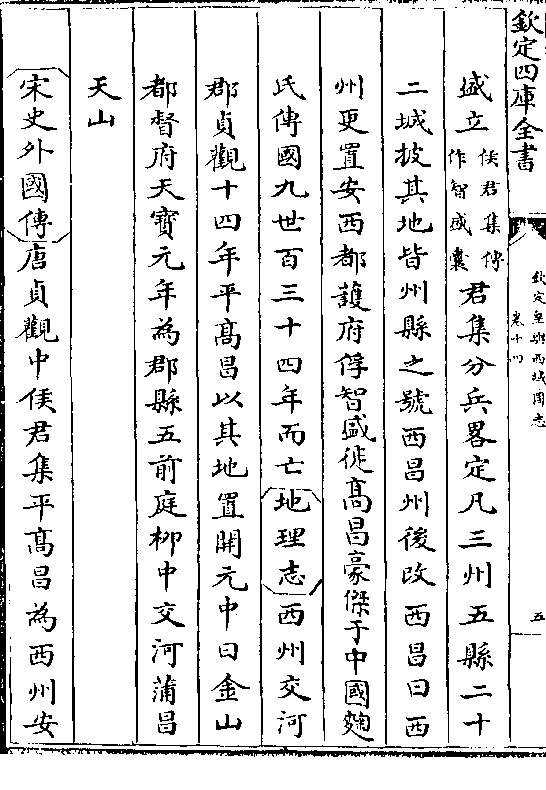 欽定四庫全書
欽定皇輿西域圖志
卷十四
五
盛立侯君集傳作智盛囊君集分兵畧定凡三州五縣二十
二城披其地皆州縣之號西昌州後改西昌曰西
州更置安西都護府俘智盛徙髙昌豪傑于中國麴
氏傳國九世百三十四年而亡地理志西州交河
郡貞觀十四年平髙昌以其地置開元中曰金山
都督府天寶元年為郡縣五前庭栁中交河蒲昌
天山
宋史外國傳唐貞觀中侯君集平髙昌為西州安